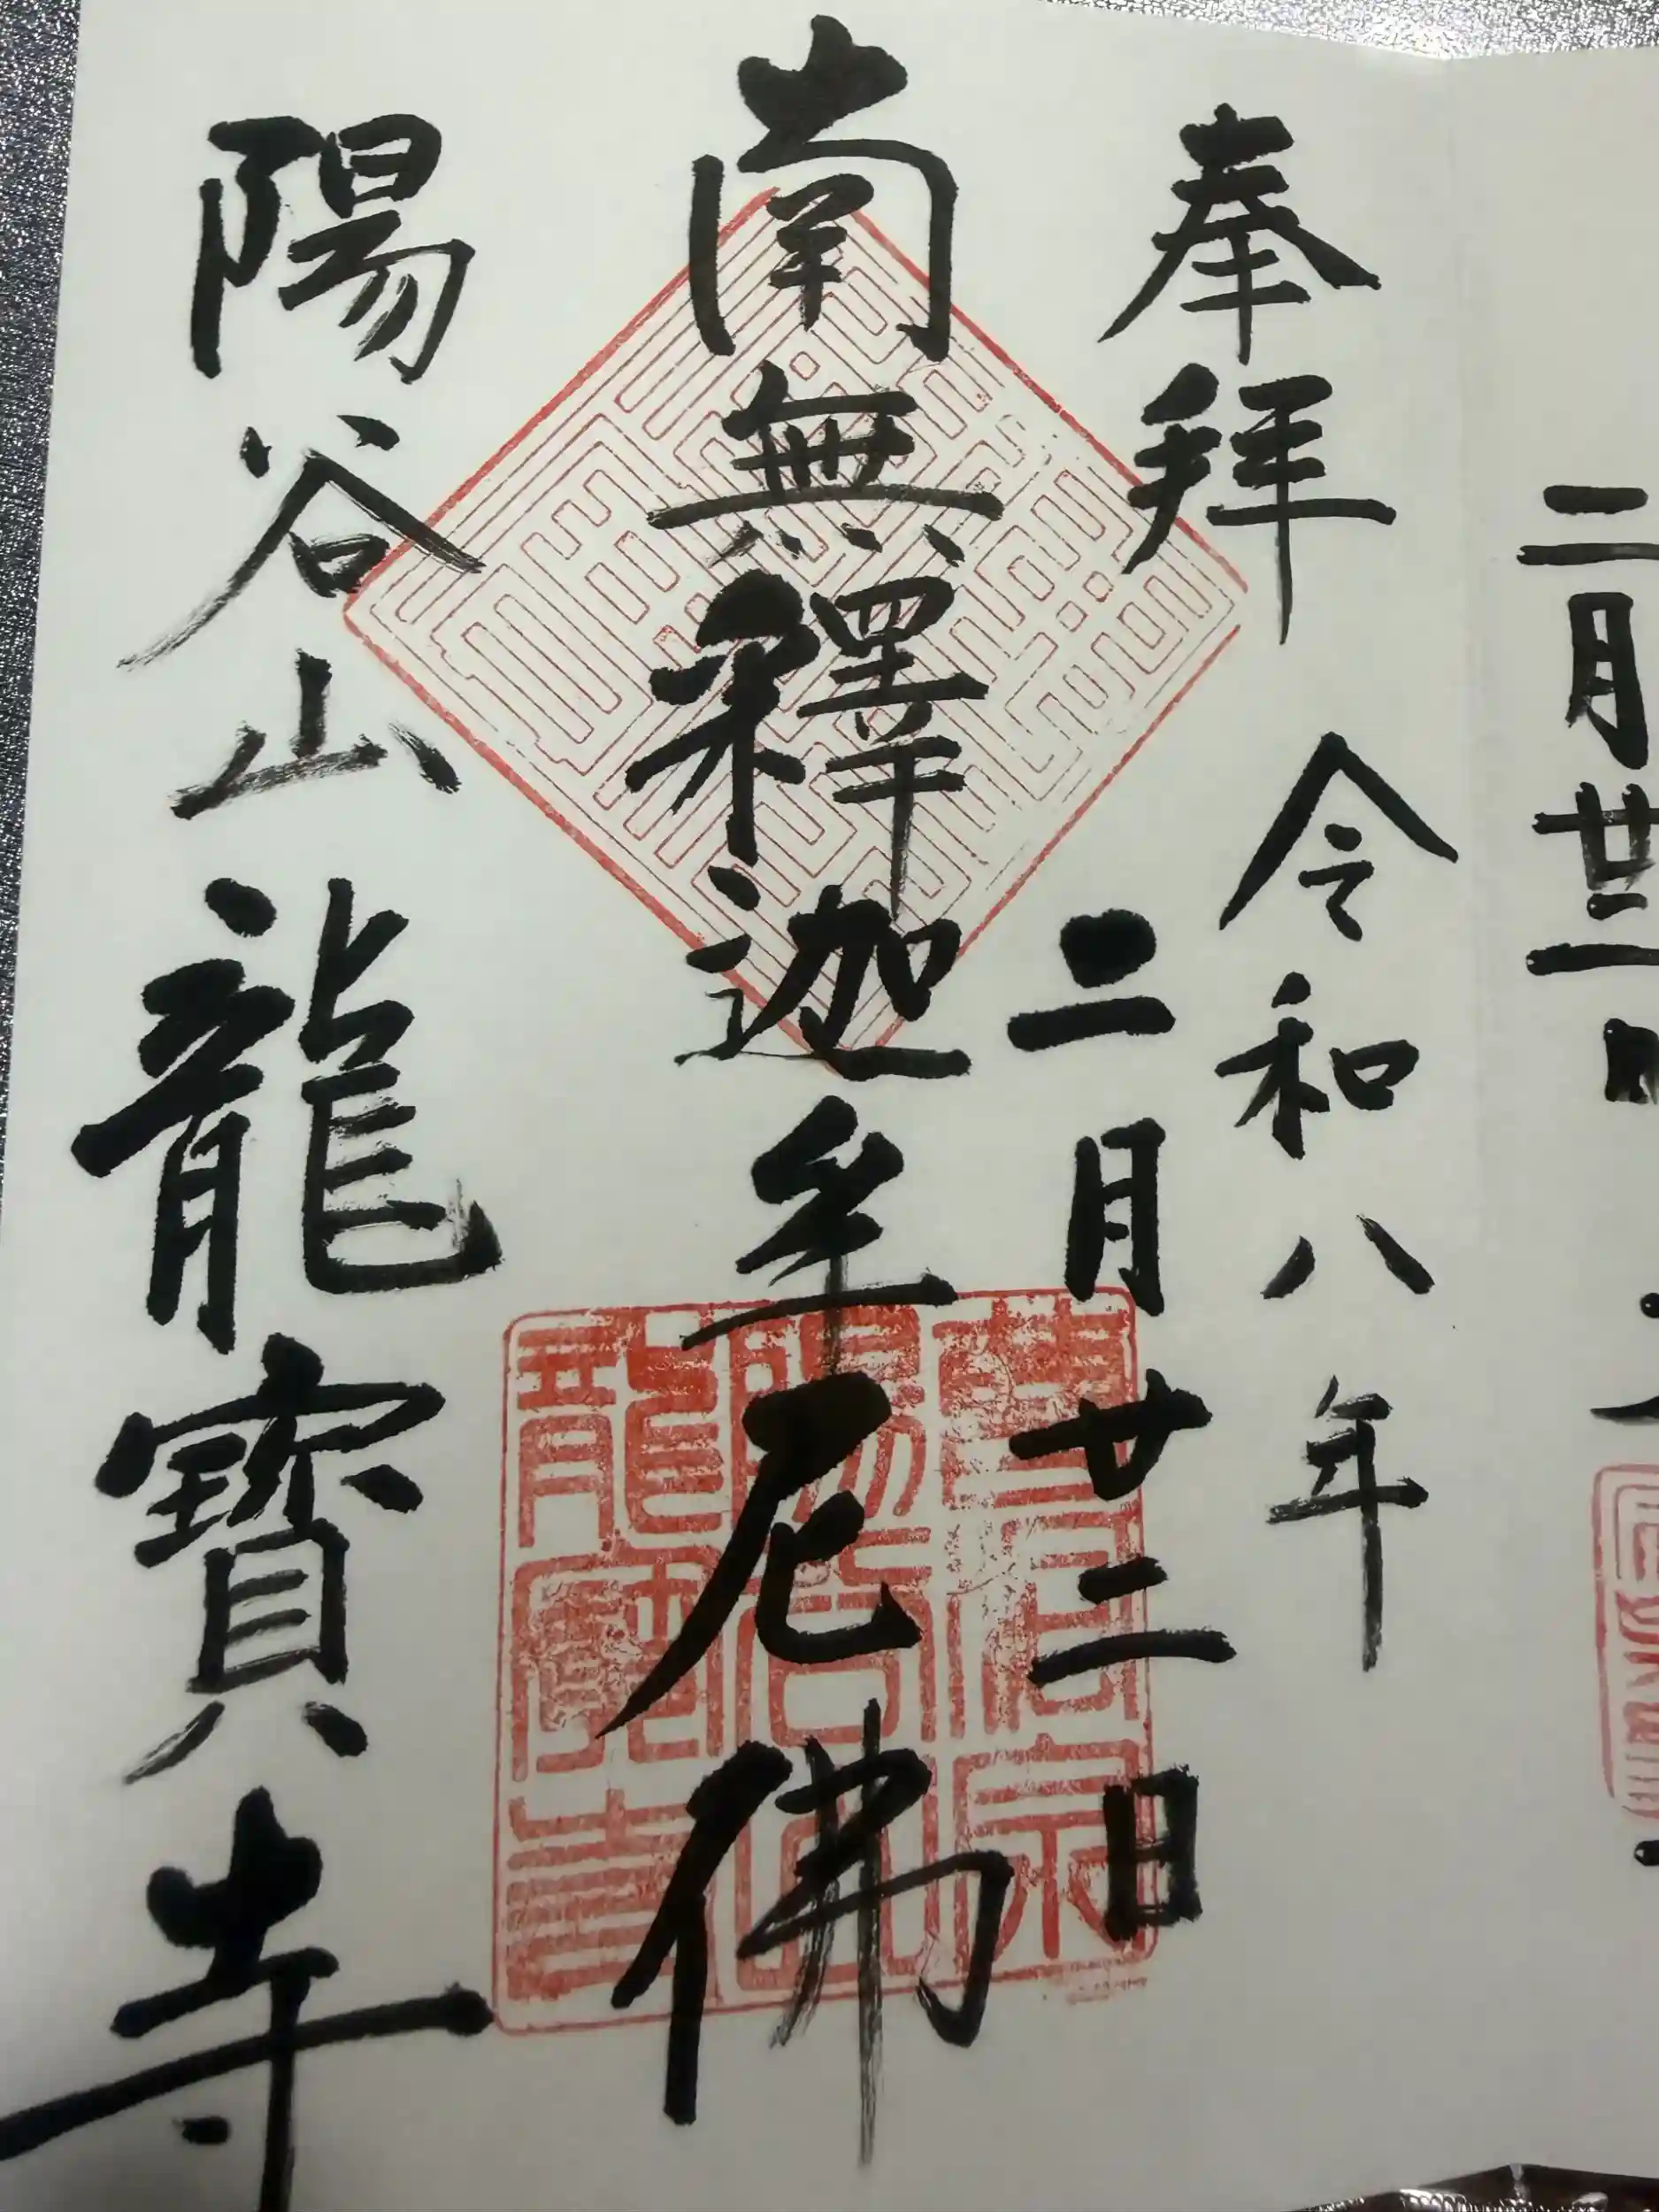 二月廿三日
奉拝
令和八年
二月廿三日
南無釋迦牟尼佛
陽谷山龍寶寺
曹洞宗
陽谷山
龍寶寺